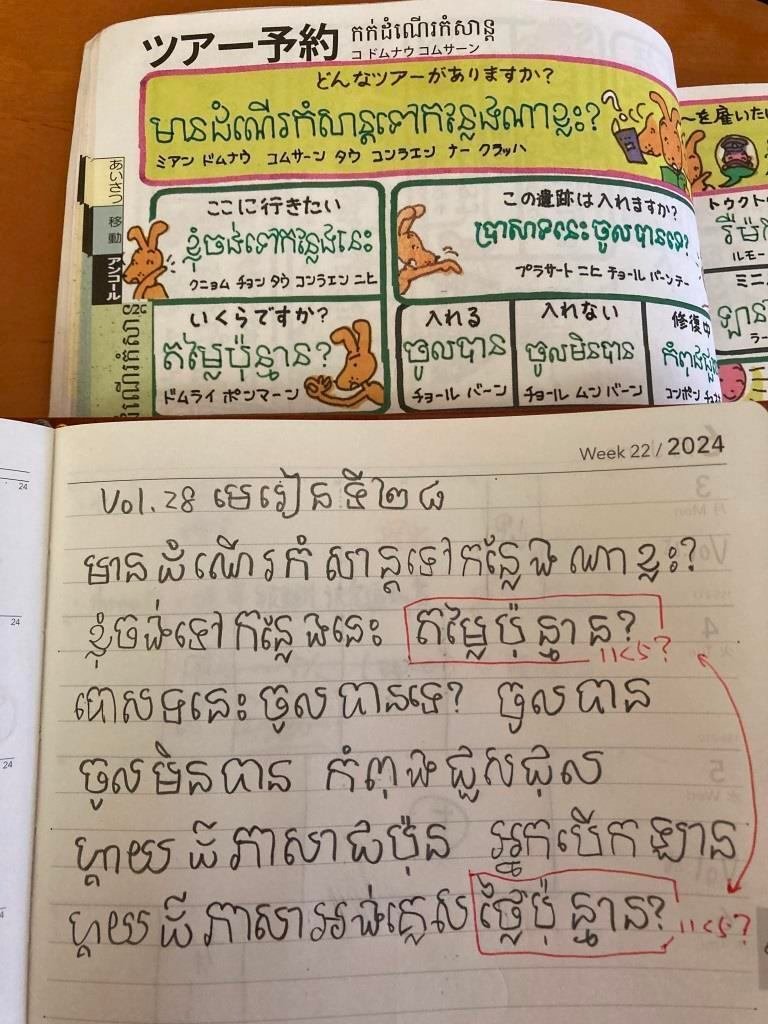 ツアー予約 កក់ដំណើរកំសាន្ត
コ ドムナウ コムサーン
どんなツアーがありますか?
មានដំណើរកំសាន្តទៅកន្លែងណាខ្លះ?
ミアン ドムナウ コムサーン タウ コンラエン ナー クラッハ
あいさつ
移動
アンコール
ここに行きたい
ខ្ញុំចង់ទៅកន្លែងនេះ
クニョム チョン タウ コンラエン ニヒ
この遺跡は入れますか?
ប្រាសាទនេះចូលបានទេ?
プラサート ニヒ チョール バーンテー
いくらですか?
តម្លៃប៉ុន្មាន?
ドムライ ポンマーン
入れる
ចូលបាន
チョール バーン
入れない
ចូលមិនបាន
チョール ムン バーン
修復中
コンポン
〜を雇いたい
トゥクト
ルモー
ミニ
Week 22 / 2024
Vol.28 មេរៀនទី២៨
មានដំណើរកំសាន្តទៅកន្លែងណាខ្លះ?
ខ្ញុំចង់ទៅកន្លែងនេះ តម្លៃប៉ុន្មាន?
いくら?
នេះចូលបានទេ? ចូលបាន
ចូលមិនបាន កំពុងជួសជុល
ភាសាជប៉ុន អ្នកបើកឡាន
ភាសាអង់គ្លេស ថ្លៃប៉ុន្មាន?
いくら?
24
24
24